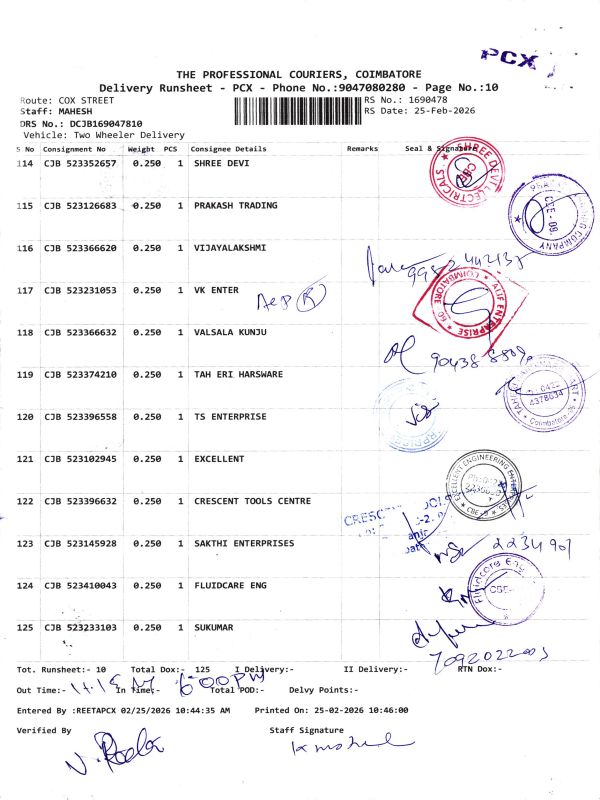 PCX
THE PROFESSIONAL COURIERS, COIMBATORE
Delivery Runsheet - PCX - Phone No.:9047080280 - Page No.:10
Route: COX STREET RS No.: 1690478
Staff: MAHESH RS Date: 25-Feb-2026
DRS No.: DCJB169047810
Vehicle: Two Wheeler Delivery
S No Consignment No Weight PCS Consignee Details Remarks Seal & Signature
114 CJB 523352657 0.250 1 SHREE DEVI
SHREE DEVI ELECTRICALS
115 CJB 523126683 0.250 1 PRAKASH TRADING
COMPANY
116 CJB 523366620 0.250 1 VIJAYALAKSHMI
117 CJB 523231053 0.250 1 VK ENTER
ATIF ENTERPRISE COIMBATORE
118 CJB 523366632 0.250 1 VALSALA KUNJU
119 CJB 523374210 0.250 1 TAH ERI HARSWARE
0422
4378634
Coimbatore
120 CJB 523396558 0.250 1 TS ENTERPRISE
121 CJB 523102945 0.250 1 EXCELLENT
EXCELLENT ENGINEERING
122 CJB 523396632 0.250 1 CRESCENT TOOLS CENTRE
123 CJB 523145928 0.250 1 SAKTHI ENTERPRISES
2234901
124 CJB 523410043 0.250 1 FLUIDCARE ENG
Fluidcore
125 CJB 523233103 0.250 1 SUKUMAR
7092022003
Tot. Runsheet:- 10 Total Dox:- 125 I Delivery:- II Delivery:- RTN Dox:-
Out Time:- 11.15 In Time:- 6:00PM Total POD:- Delvy Points:-
Entered By :REETAPCX 02/25/2026 10:44:35 AM Printed On: 25-02-2026 10:46:00
Verified By Staff Signature